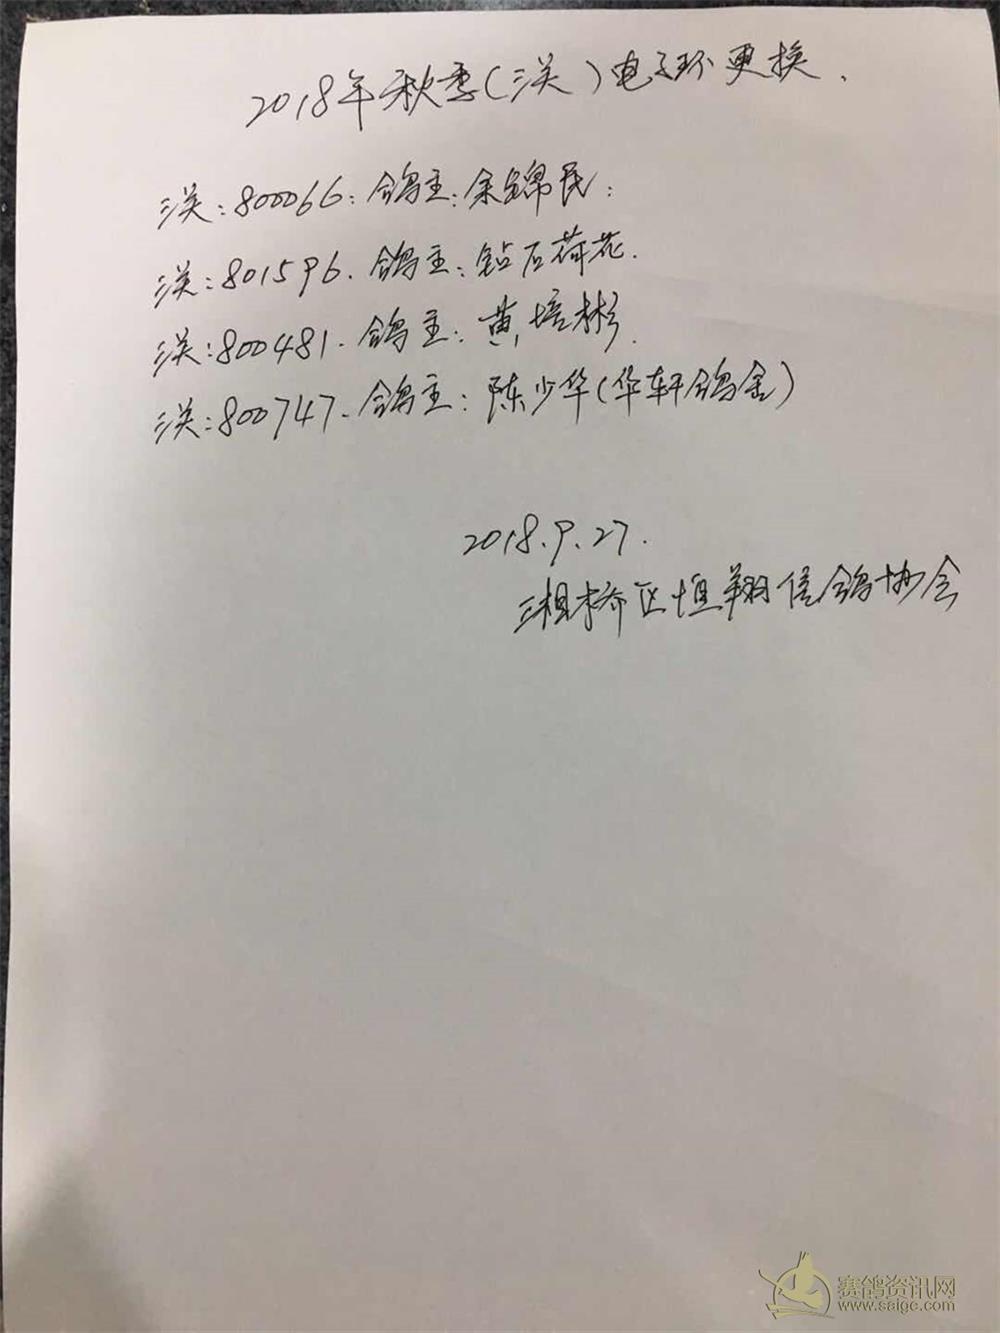 2018年秋季(洪)电子环更换.
洪:800066:鸽主:余锦民:
洪:801596.鸽主:钻石荷花.
洪:800481.鸽主:黄培彬.
洪:800747.鸽主:陈少华(华轩鸽舍)
2018.9.27.
湘桥区恒翔信鸽协会
赛鸽资讯网
www.saigc.com